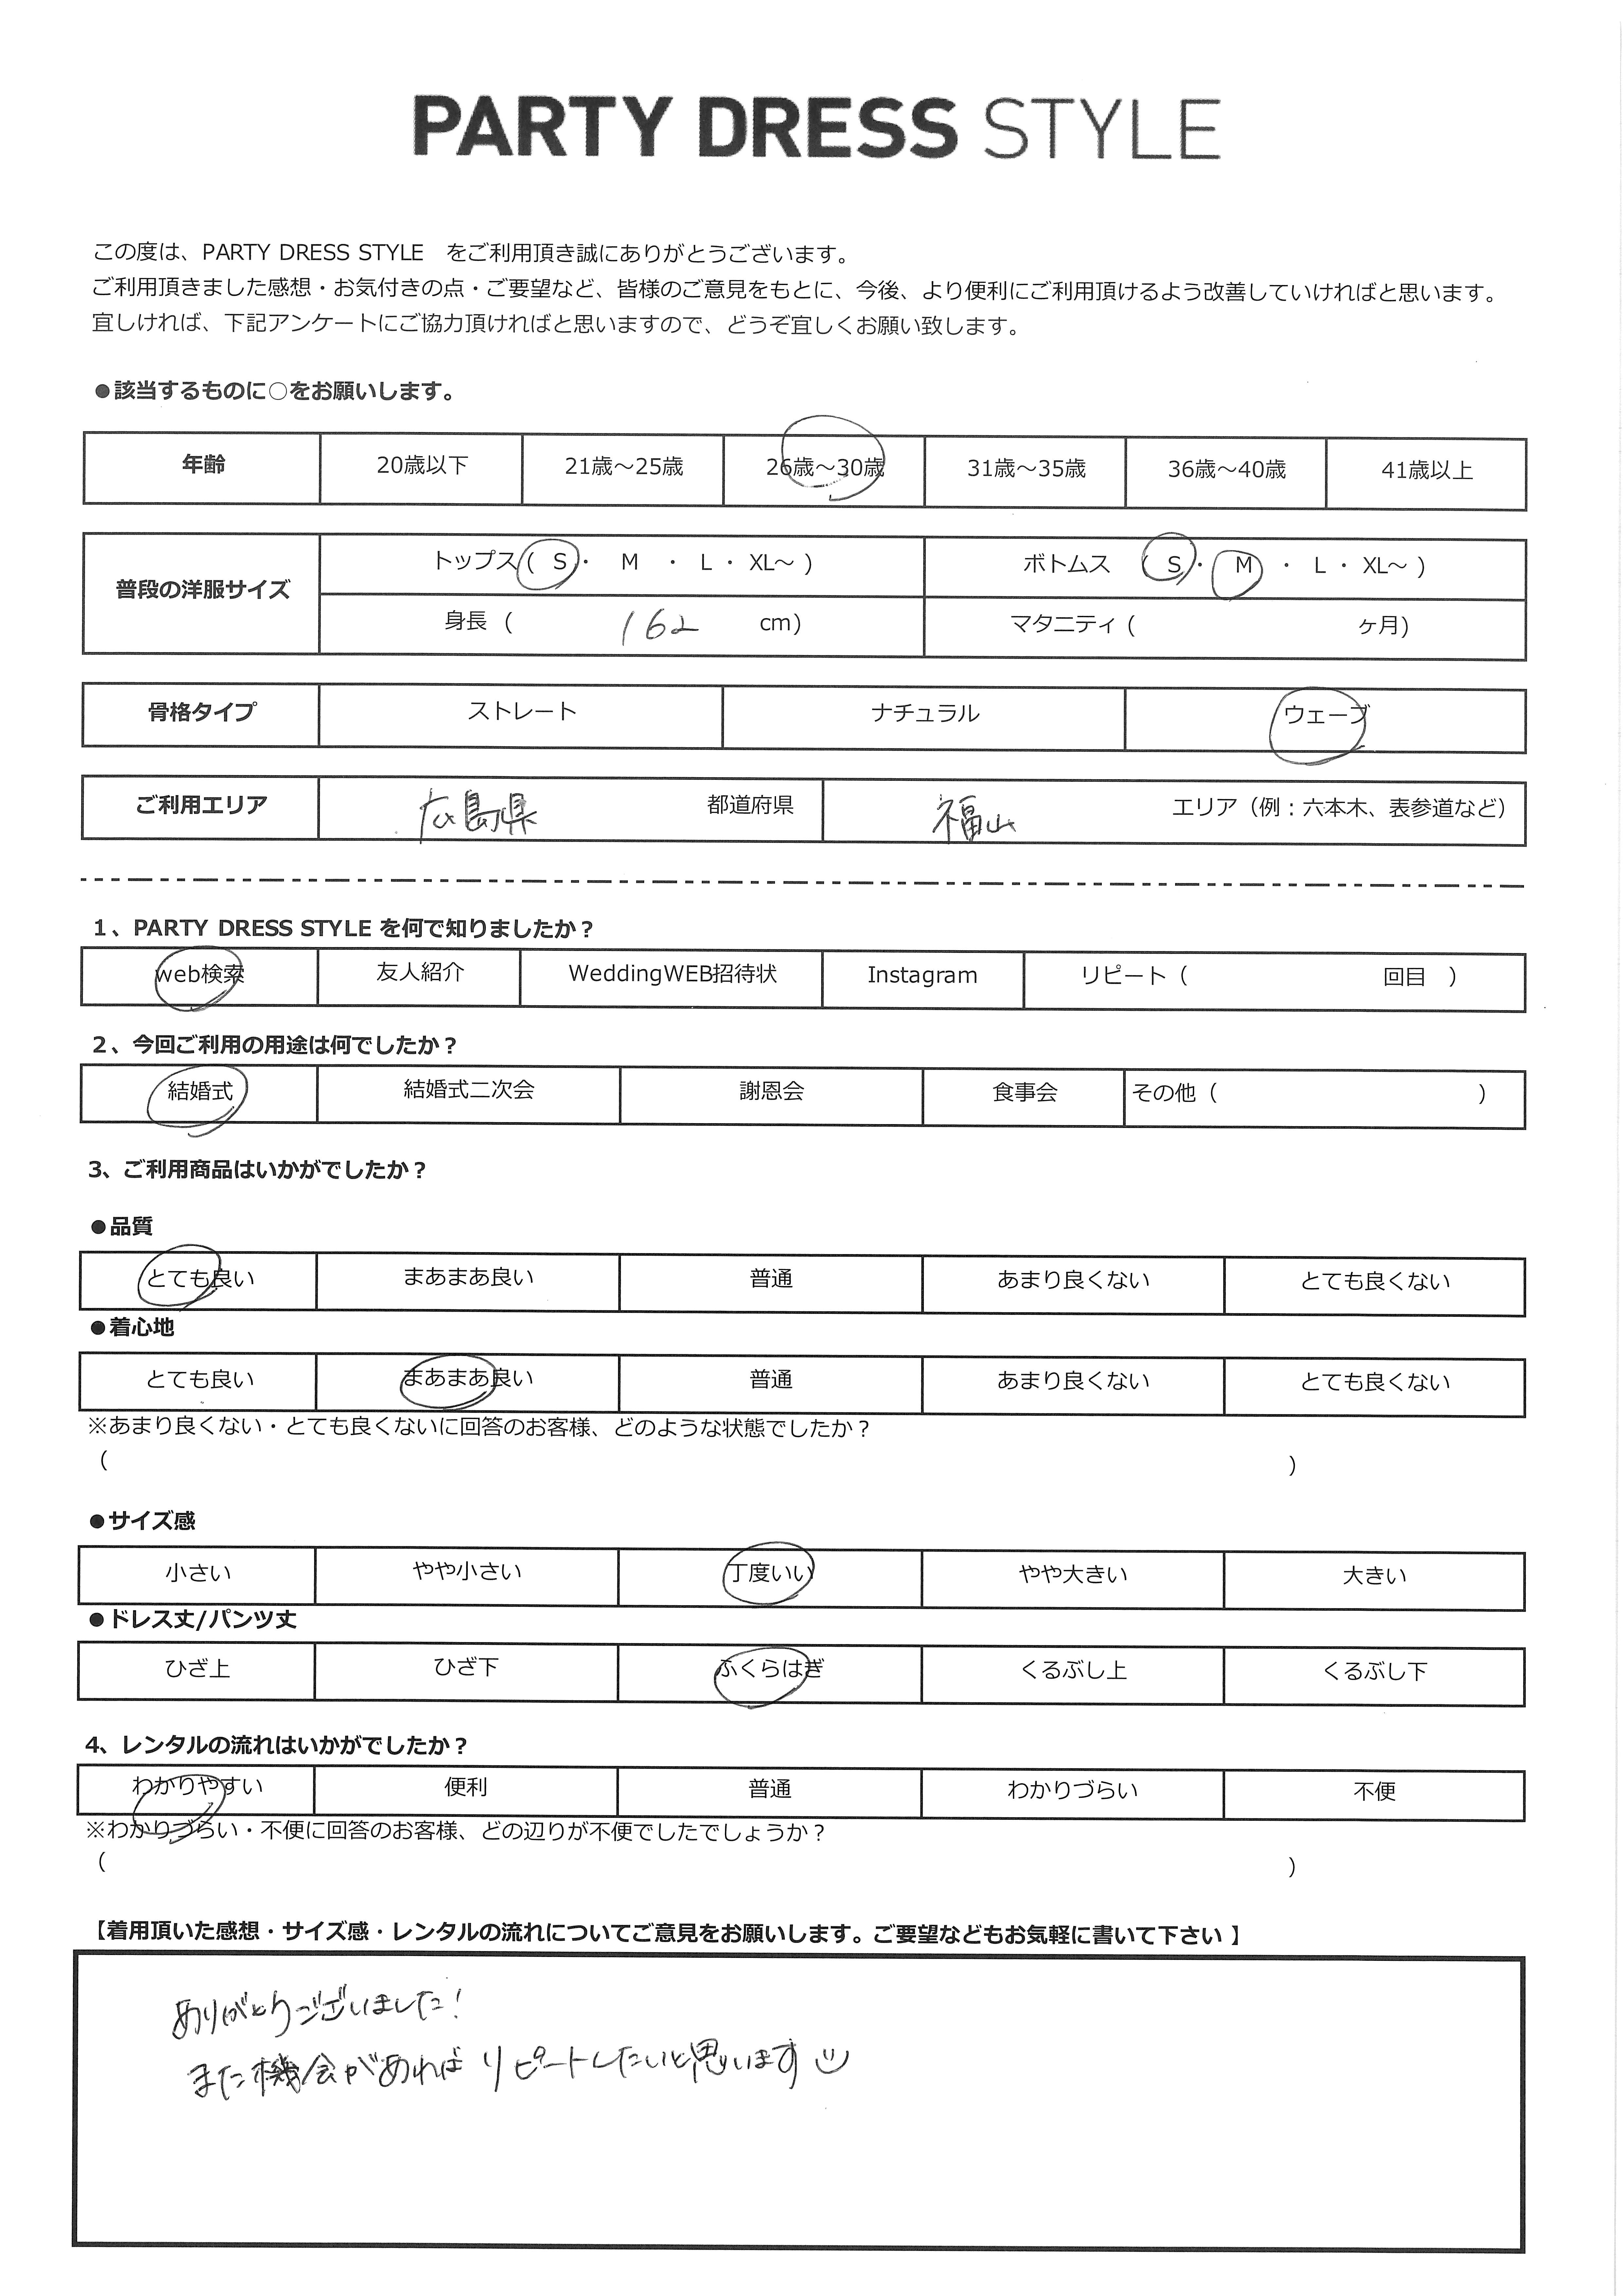 PARTY DRESS STYLE
この度は、PARTY DRESS STYLE をご利用頂き誠にありがとうございます。
ご利用頂きました感想・お気付きの点・ご要望など、皆様のご意見をもとに、今後、より便利にご利用頂けるよう改善していければと思います。
宜しければ、下記アンケートにご協力頂ければと思いますので、どうぞ宜しくお願い致します。
●該当するものに○をお願いします。
年齢 20歳以下 21歳～25歳 26歳～30歳 31歳～35歳 36歳～40歳 41歳以上
普段の洋服サイズ トップス( S ・ M ・ L ・ XL～ ) ボトムス ( S ・ M ・ L ・ XL～ )
身長 ( 162 cm) マタニティ ( ヶ月)
骨格タイプ ストレート ナチュラル ウェーブ
ご利用エリア 広島県 都道府県 福山 エリア（例：六本木、表参道など）
1、PARTY DRESS STYLE を何で知りましたか？
web検索 友人紹介 WeddingWEB招待状 Instagram リピート（ 回目 ）
2、今回ご利用の用途は何でしたか？
結婚式 結婚式二次会 謝恩会 食事会 その他（ ）
3、ご利用商品はいかがでしたか？
●品質
とても良い まあまあ良い 普通 あまり良くない とても良くない
●着心地
とても良い まあまあ良い 普通 あまり良くない とても良くない
※あまり良くない・とても良くないに回答のお客様、どのような状態でしたか？
( )
●サイズ感
小さい やや小さい 丁度いい やや大きい 大きい
●ドレス丈/パンツ丈
ひざ上 ひざ下 ふくらはぎ くるぶし上 くるぶし下
4、レンタルの流れはいかがでしたか？
わかりやすい 便利 普通 わかりづらい 不便
※わかりづらい・不便に回答のお客様、どの辺りが不便でしたでしょうか？
( )
【着用頂いた感想・サイズ感・レンタルの流れについてご意見をお願いします。ご要望などもお気軽に書いて下さい 】
ありがとうございました！
また機会があればリピートしたいと思います